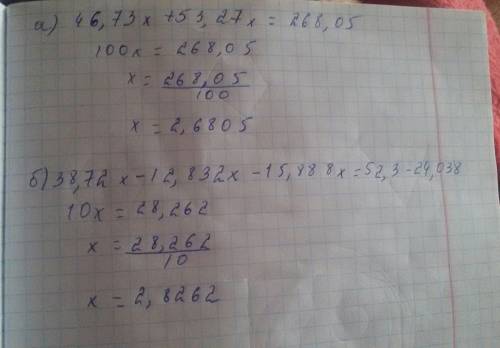 а) 46,73x + 53,27x = 268,05
100x = 268,05
x = 268,05/100
x = 2,6805
б) 38,72x - 12,832x - 15,888x = 52,3 - 24,038
10x = 28,262
x = 28,262/10
x = 2,8262